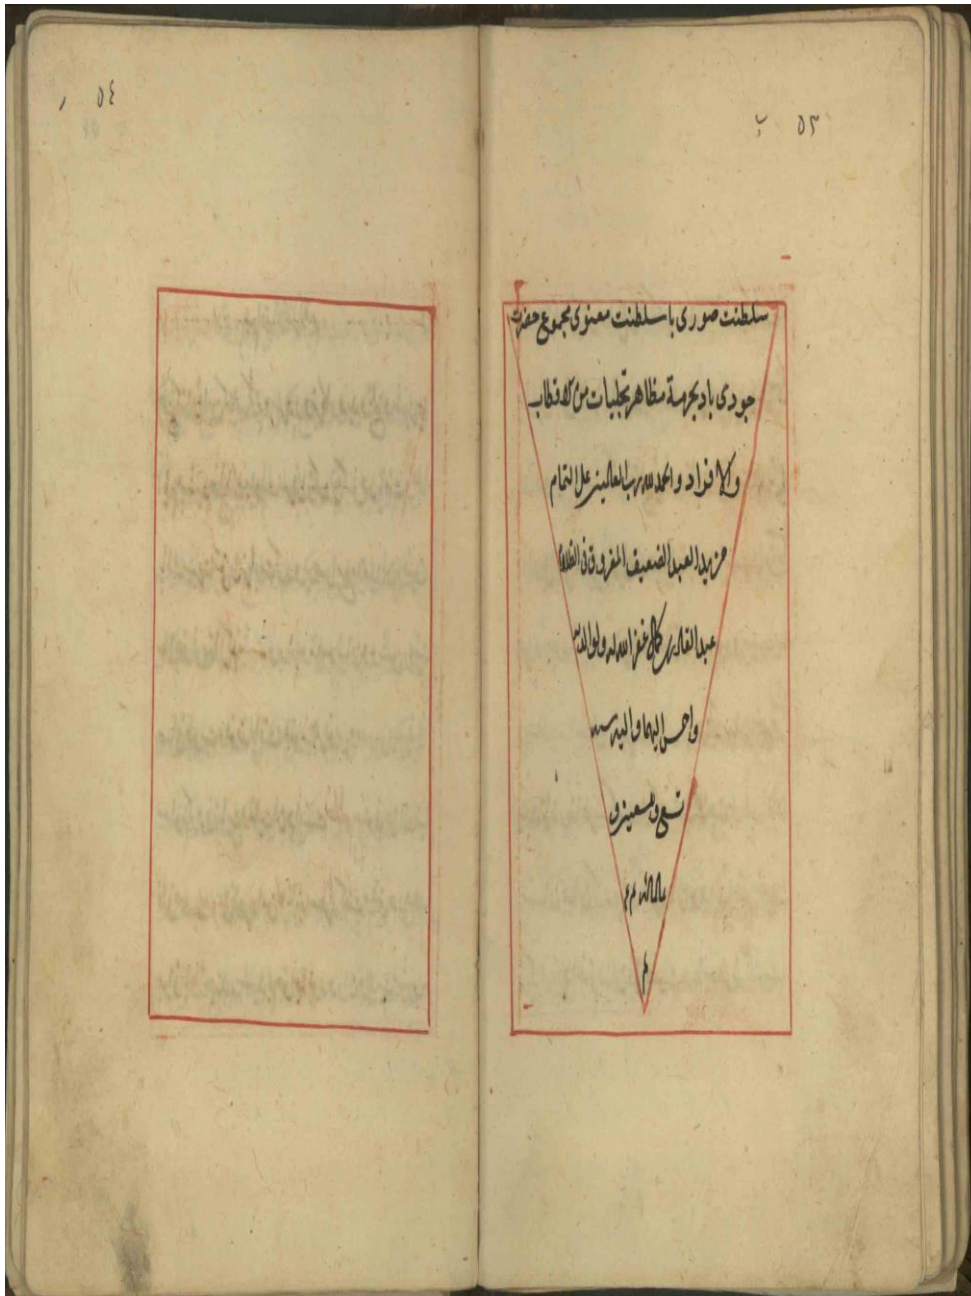 ٥٣ ب
سلطنت صوری با سلطنت معنوی مجموع حضرت
جودی باد بحرمة مظاهر تجلیات من الاقطاب
والافراد والحمد لله رب العالمین علی التمام
من ید العبد الضعیف المغروق فی الظلام
عبدالقادر غفر الله له ولوالدیه
واحسن الیهما والیه سنه
تسع و تسعین و
٥٤ ر